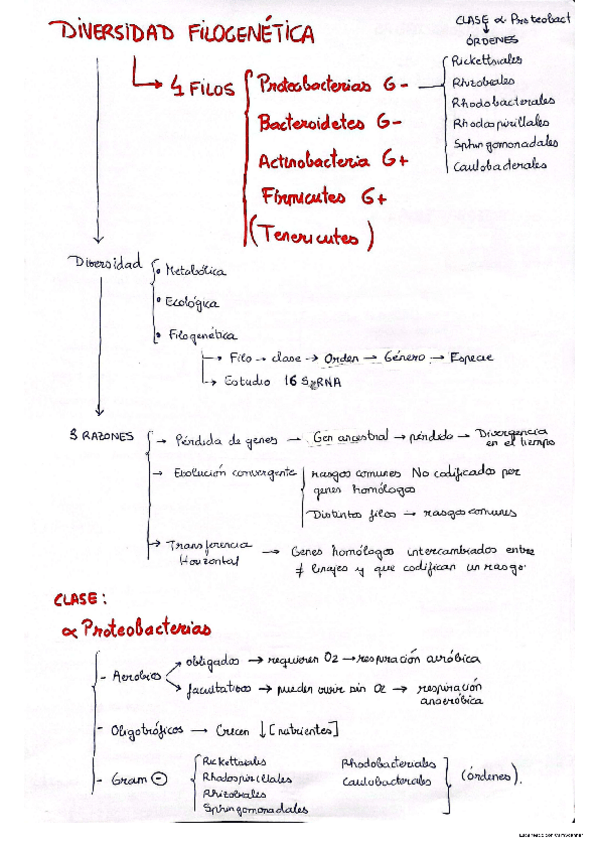 DIVERSIDAD FILOGENÉTICA
CLASE α-Proteobact
ÓRDENES
4 FILOS
Proteobacterias G-
Bacteroidetes G-
Actinobacteria G+
Firmicutes G+
(Tenericutes)
Rickettsiales
Rhizobiales
Rhodobacterales
Rhodospirillales
Sphingomonadales
Caulobacterales
Diversidad
• Metabólica
• Ecológica
• Filogenética
→ Filo → clase → Orden → Género → Especie
→ Estudio 16 SrRNA
3 RAZONES
→ Pérdida de genes → Gen ancestral → pérdida → Divergencia
en el tiempo
→ Evolución convergente
rasgos comunes No codificados por
genes homólogos
Distintos filos → rasgos comunes
→ Transferencia → Genes homólogos intercambiados entre
Horizontal ≠ linajes y que codifican un rasgo.
CLASE:
α Proteobacterias
- Aerobios
obligados → requieren O2 → respiración aeróbica
facultativos → pueden vivir sin O2 → respiración
anaeróbica
- Oligotróficos → Crecen ↓ [nutrientes]
- Gram ⊖
Rickettsiales
Rhodospirillales
Rhizobiales
Sphingomonadales
Rhodobacteriales
Caulobacterales
(órdenes).